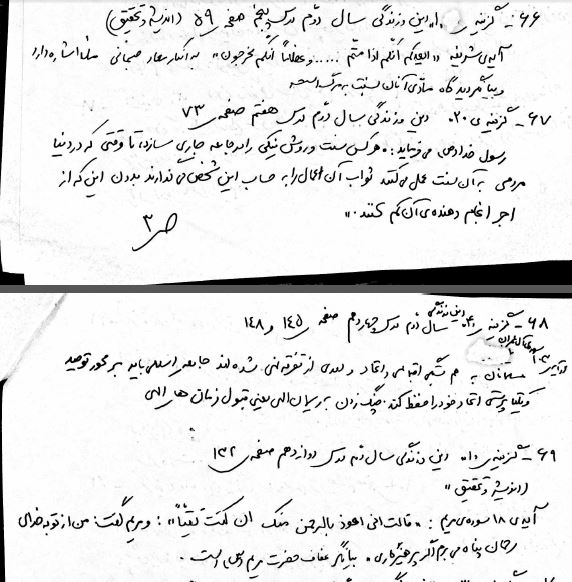 ۶۶- گزینه ی «۱» دین و زندگی سال دوّم درس پنجم صفحه ی ۵۹ (اندیشه و تحقیق)
آیه ی شریفه «ایعدکم انّکم اذا متّم ..... و عظاماً انّکم مخرجون» به انکار معاد جسمانی اشاره دارد
و بیانگر دیدگاه مادّی آنان نسبت به مرگ است
۶۷- گزینه ی «۲» دین و زندگی سال دوّم درس هفتم صفحه ی ۷۳
رسول خدا (ص) می فرماید: «هر کس سنت و روش نیکی را در جامعه جاری سازد، تا وقتی که در دنیا
مردمی به آن سنت عمل می کنند ثواب آن اعمال را به حساب این شخص می گذارند بدون این که از
اجر انجام دهنده ی آن کم کنند.»
ص ۳
۶۸- گزینه ی دین و زندگی سال دوم درس چهاردهم صفحه ی ۱۴۵ و ۱۴۸
مسلمانان به هم بستگی اجتماعی و اتحاد و دوری از تفرقه شده اند جامعه اسلامی باید بر محور توحید
و یکتاپرستی اتحاد خود را حفظ کند. چنگ زدن به ریسمان الهی یعنی قبول فرمان های الهی
۶۹- گزینه ی «۱» دین و زندگی سال دوم درس دوازدهم صفحه ی ۱۳۲
(اندیشه و تحقیق)
آیه ی ۱۸ سوره ی مریم: «قالت انی اعوذ بالرحمن منک ان کنت تقیّاً»: و مریم گفت: من از تو به خدای
رحمان پناه می برم اگر پرهیزگاری. بیانگر عفاف حضرت مریم (س) است.